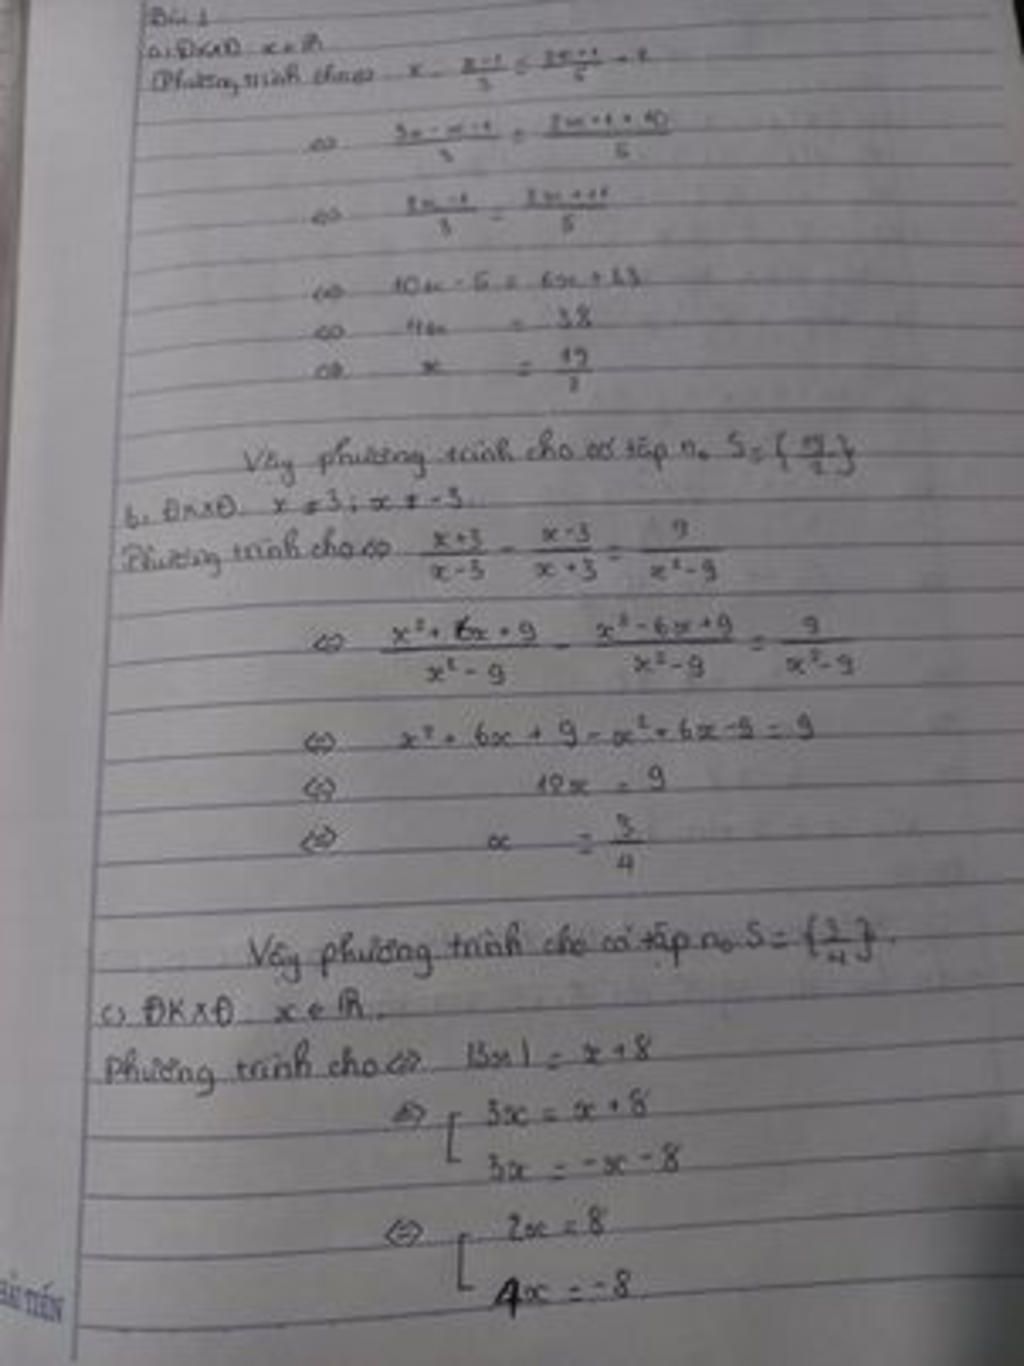 Bài 1
a, ĐKXĐ x ∈ R
Phương trình cho ⇔ x - (x-1)/3 = (2x+1)/5 + 2
⇔ (3x - x - 1)/3 = (2x + 1 + 10)/5
⇔ (2x - 1)/3 = (2x + 11)/5
⇔ 10x - 5 = 6x + 33
⇔ 4x = 38
⇔ x = 19/2
Vậy phương trình cho có tập no S = {19/2}
b, ĐKXĐ x ≠ 3 ; x ≠ -3
Phương trình cho ⇔ (x+3)/(x-3) - (x-3)/(x+3) = 9/(x²-9)
⇔ (x² + 6x + 9)/(x² - 9) - (x² - 6x + 9)/(x² - 9) = 9/(x² - 9)
⇔ x² + 6x + 9 - x² + 6x - 9 = 9
⇔ 12x = 9
⇔ x = 3/4
Vậy phương trình cho có tập no S = {3/4}.
c, ĐKXĐ x ∈ R.
Phương trình cho ⇔ |3x| = x + 8
⇔ [ 3x = x + 8
3x = -x - 8
⇔ [ 2x = 8
4x = -8
ẢI TIẾN